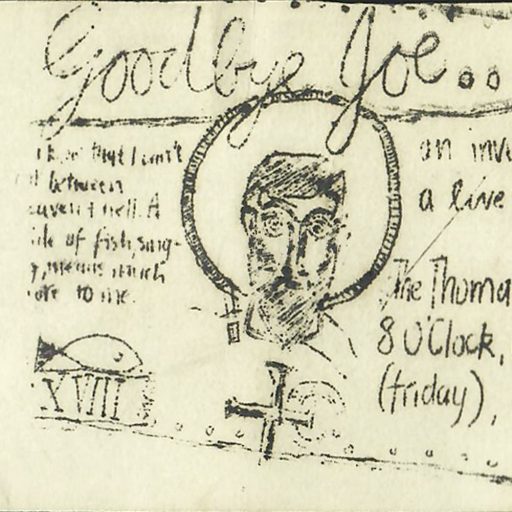 Goodbye Joe..
that I can't
between
hell. A
of fish, sing-
means much
to me.
XVIII
an inv
a live
The Thoma
8 O'Clock,
(friday),